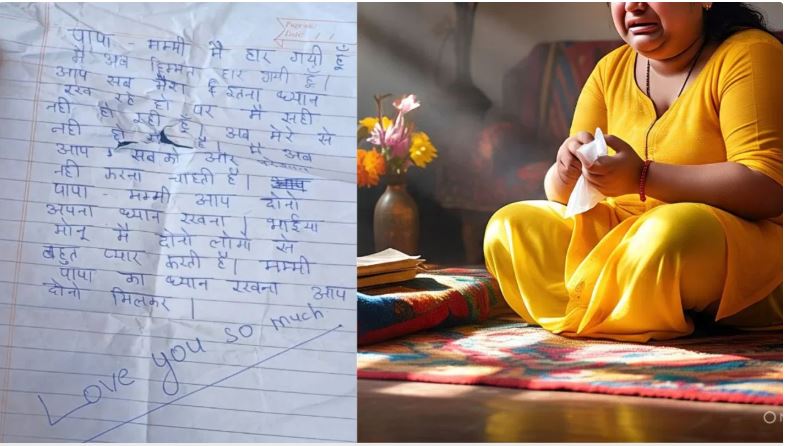 पापा - मम्मी मै हार गयी हूँ
मै अब हिम्मत हार गयी हूँ।
आप सब मेरा इतना ध्यान
रख रहे हो पर मै सही
नही हो रही हूँ। अब मेरे से
नही हो है। मै अब
आप सबको और
नही करना चाहती हूँ।
पापा - मम्मी आप दोनो
अपना ध्यान रखना। भाईया
मोनू मै दोनो लोगो से
बहुत प्यार करती हूँ। मम्मी
पापा का ध्यान रखना आप
दोनो मिलकर।
Love you so much